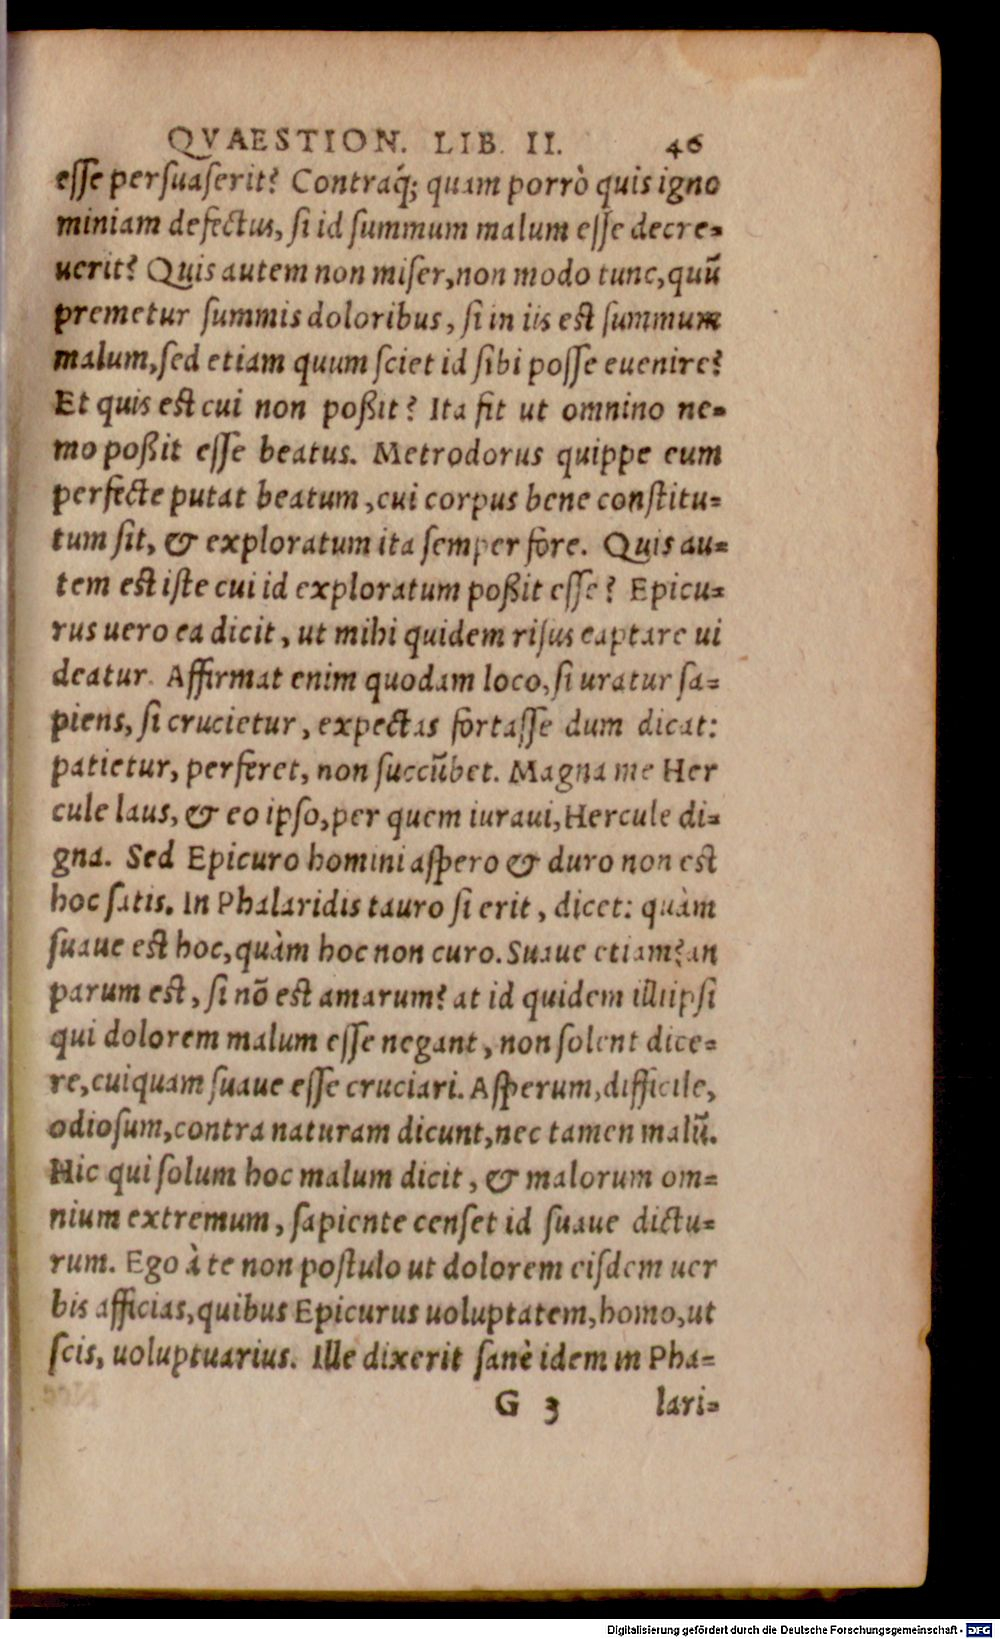 QVAESTION. LIB. II. 46
esse persuaserit? Contraq́; quam porrò quis igno
miniam defectus, si id summum malum esse decre-
uerit? Quis autem non miser, non modo tunc, quū
premetur summis doloribus, si in iis est summum
malum, sed etiam quum sciet id sibi posse euenire?
Et quis est cui non poßit? Ita fit ut omnino ne-
mo poßit esse beatus. Metrodorus quippe eum
perfecte putat beatum, cui corpus bene constitu-
tum sit, & exploratum ita semper fore. Quis au-
tem est iste cui id exploratum poßit esse? Epicu-
rus uero ea dicit, ut mihi quidem risus captare ui
deatur. Affirmat enim quodam loco, si uratur sa-
piens, si crucietur, expectas fortasse dum dicat:
patietur, perferet, non succūbet. Magna me Her
cule laus, & eo ipso, per quem iuraui, Hercule di-
gna. Sed Epicuro homini aspero & duro non est
hoc satis. In Phalaridis tauro si erit, dicet: quàm
suaue est hoc, quàm hoc non curo. Suaue etiam? an
parum est, si nō est amarum? at id quidem illi ipsi
qui dolorem malum esse negant, non solent dice-
re, cuiquam suaue esse cruciari. Asperum, difficile,
odiosum, contra naturam dicunt, nec tamen malū.
Hic qui solum hoc malum dicit, & malorum om-
nium extremum, sapiente censet id suaue dictu-
rum. Ego à te non postulo ut dolorem eisdem uer
bis afficias, quibus Epicurus uoluptatem, homo, ut
scis, uoluptuarius. Ille dixerit sanè idem in Pha-
G 3 lari-
Digitalisierung gefördert durch die Deutsche Forschungsgemeinschaft - DFG